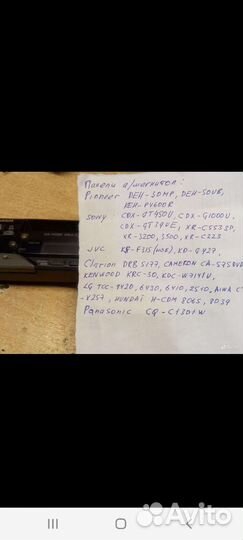 Панели а/магнитол:
Pioneer DEH-30MP, DEH-50UB,
DEH-P4600R
Sony: CDX-GT450U, CDX-G1000U,
CDX-GT390E, XR-C5535D,
XR-3200, 3500, XR-C223
JVC KD-F315, KD-G427,
Clarion DRB 5177, CAMERON CA-575
KENWOOD KRC-30, KDC-W7141U,
LG TCC-9420, 6430, 6410, 2510, AIWA C
-X257, HUNDAI H-CDM 8065, 8039
Panasonic CQ-C1301W
Avito